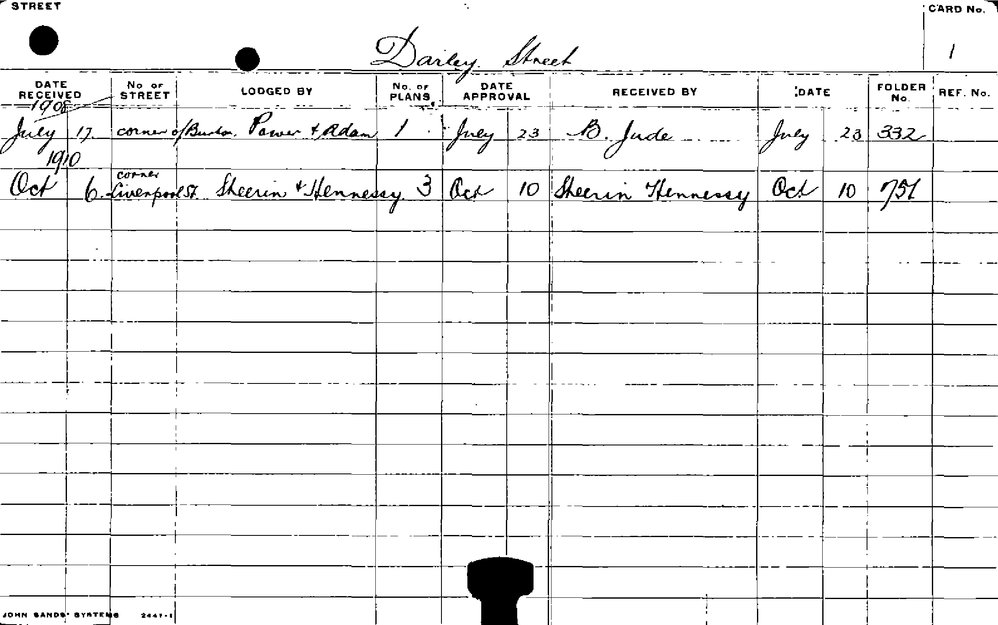 STREET
CARD No.
Darley Street
1
DATE RECEIVED No of STREET LODGED BY No. of PLANS. DATE APPROVAL RECEIVED BY DATE FOLDER No. REF. No.
1908
July 17. corner of Burton. Power & Adam 1 July 23 B. Jude July 23 332
1910
corner
Oct 6. Liverpool St. Sheerin & Hennessy. 3 Oct 10 Sheerin Hennessy Oct 10 751
JOHN SANDS' SYSTEMS 2447-1